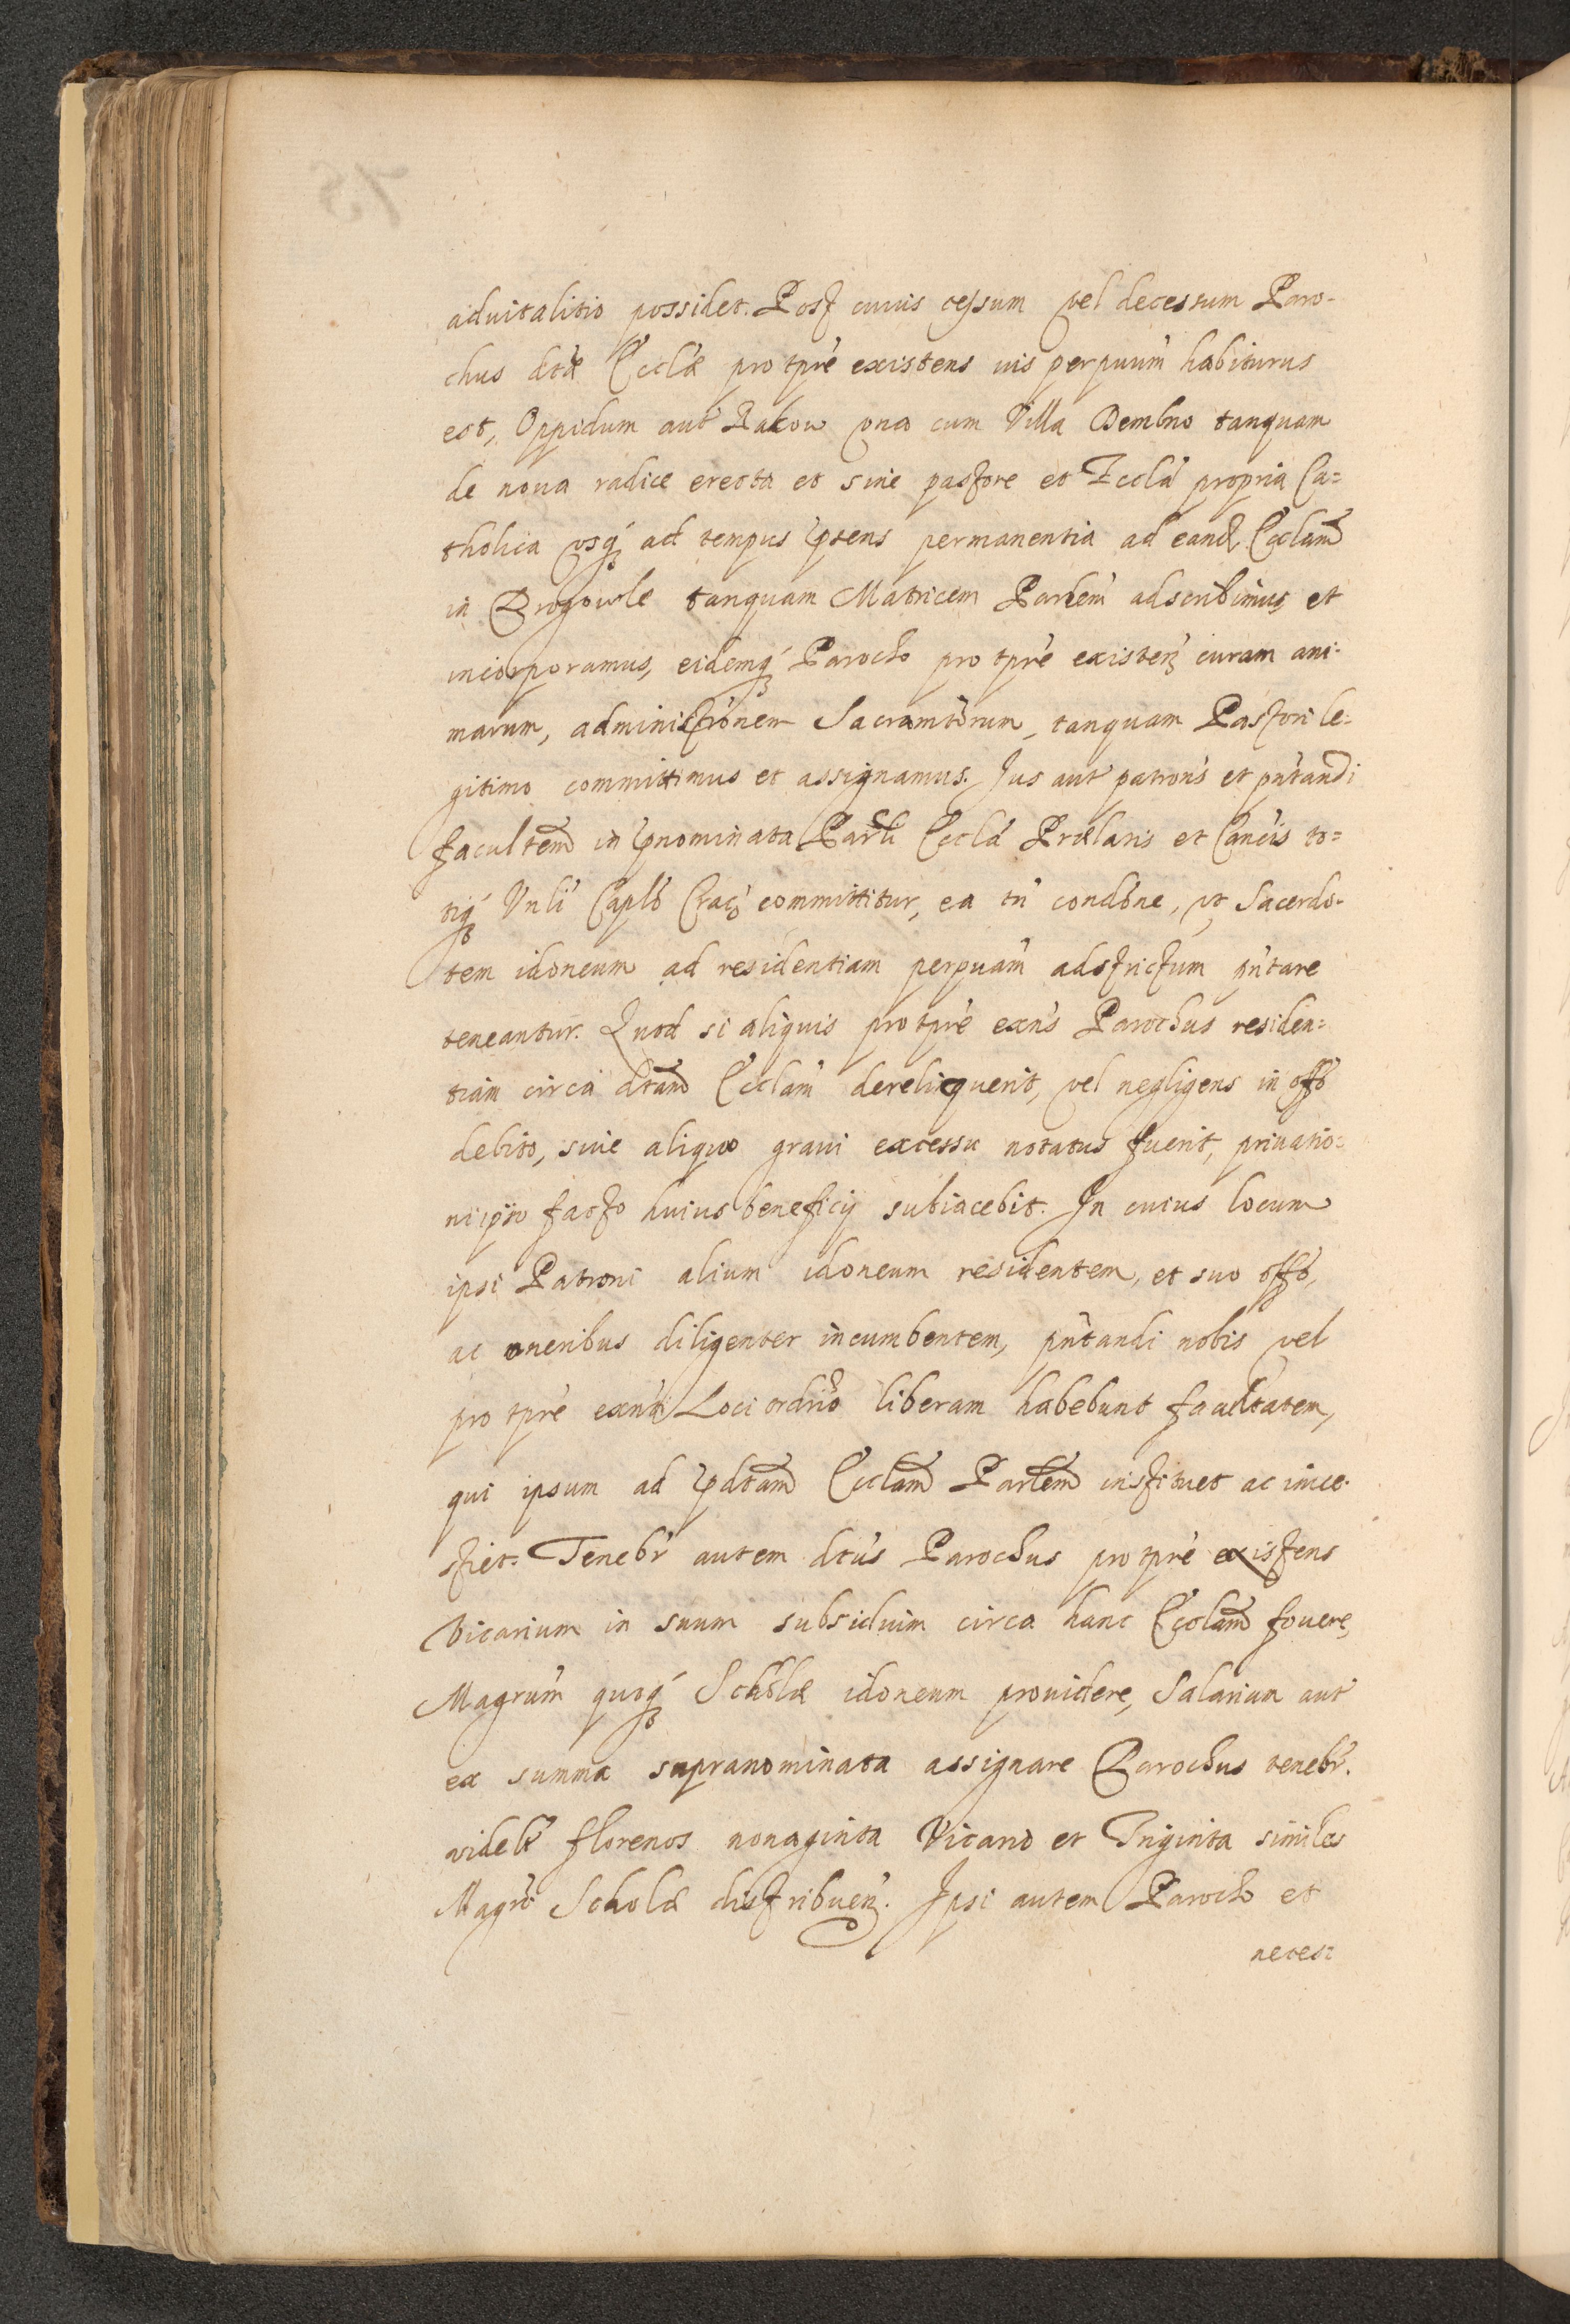 aduitalitio possidet. Post cuius cessum vel decessum Paro-
chus dtæ Ecclæ pro tpre existens ius perpuum habiturus
est, Oppidum aut Rakow vna cum Villa Dembno tanquam
de noua radice erecta et sine pastore et Eccla propria Ca=
tholica vsq ad tempus ptens permanentia ad eand Ecclam
in Drogowle tanquam Matricem Parlem adscribimus et
incorporamus, eidemq Parocho pro tpre existen curam ani-
marum, administronem Sacramtorum, tanquam Pastori le=
gitimo committimus et assignamus. Jus aut patrons et pntandi
facultem in pnominata Parli Eccla Prælatis et Cancis to=
tiq Vnli Caplo Crac committitur, ea tn condone, vt Sacerdo-
tem idoneum ad residentiam perpuam adstrictum pntare
teneantur. Quod si aliquis pro tpre exns Parochus residen=
tiam circa dtam Ecclam derelinquerit, vel negligens in offo
debito, siue aliquo graui excessu notatus fuerit, priuatio=
ni ipso facto huius beneficij subiacebit. In cuius locum
ipsi Patroni alium idoneum residentem, et suo offo,
ac oneribus diligenter incumbentem, pntandi nobis vel
pro tpre exnti Loci ordrio liberam habebunt facultatem,
qui ipsum ad pdtam Ecclam Parlem instituet ac inue-
stiet. Tenebr autem dtus Parochus pro tpre existens
Vicarium in suum subsidium circa hanc Ecclam fouere,
Magrum quoq Scholæ idoneum prouidere, Salarium aut
ex summa supranominata assignare Parochus tenebr.
videlt florenos nonaginta Vicario et Triginta similes
Magro Scholæ distribuen. Ipsi autem Parocho et
neces=